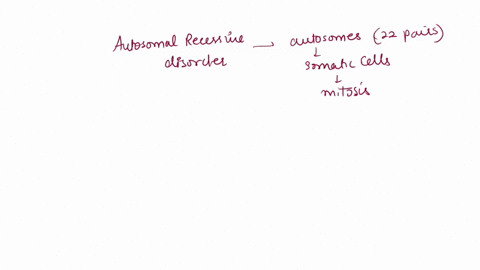 Autosomal Recessive — autosomes (22 pairs)
disorder ↓ somatic cells
↓
mitosis